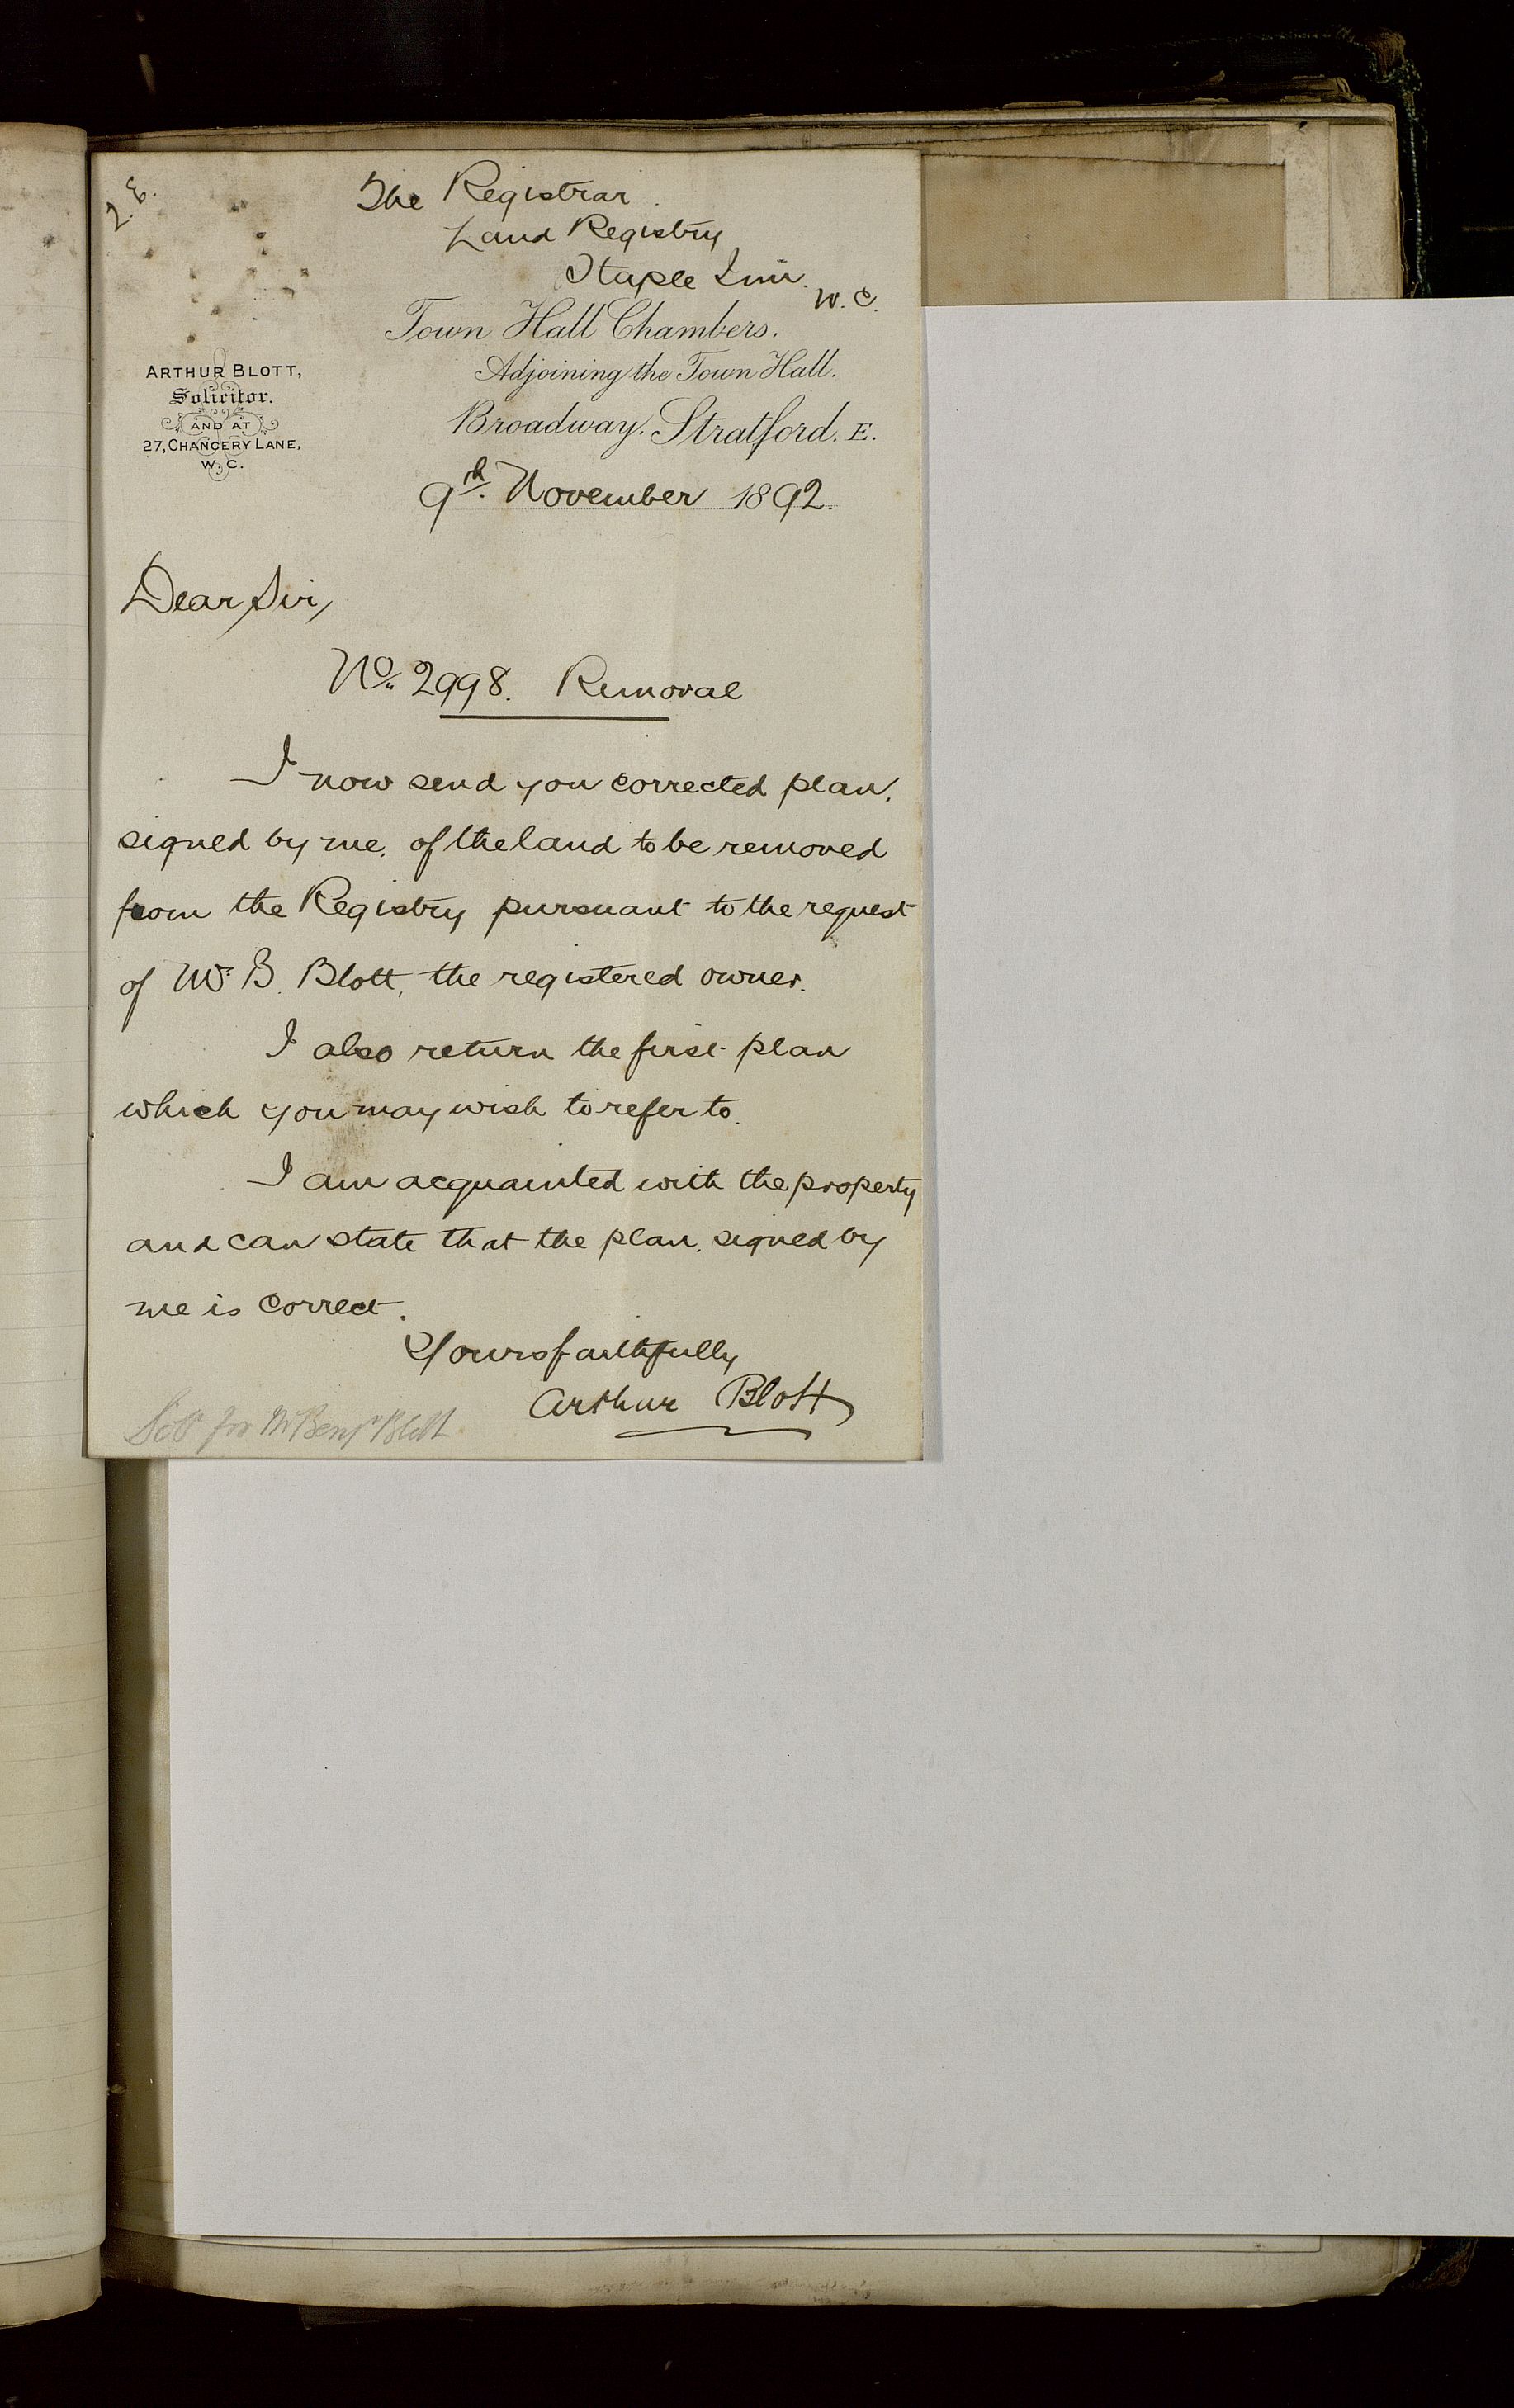 The Registrar
Land Registry
Staple Inn.
W. C.
ARTHUR BLOTT,
Solicitor.
AND AT
27, CHANCERY LANE,
W. C.
Town Hall Chambers.
Adjoining the Town Hall.
Broadway. Stratford. E.
9th. November 1892.
Dear Sir,
No. 2998. Removal
I now send you corrected plan,
signed by me, of the land to be removed
from the Registry pursuant to the request
of Mr. B. Blott, the registered owner.
I also return the first plan
which you may wish to refer to.
I am acquainted with the property
and can state that the plan, signed by
me is correct.
Yours faithfully
Arthur Blott
for Mr Benjn Blott